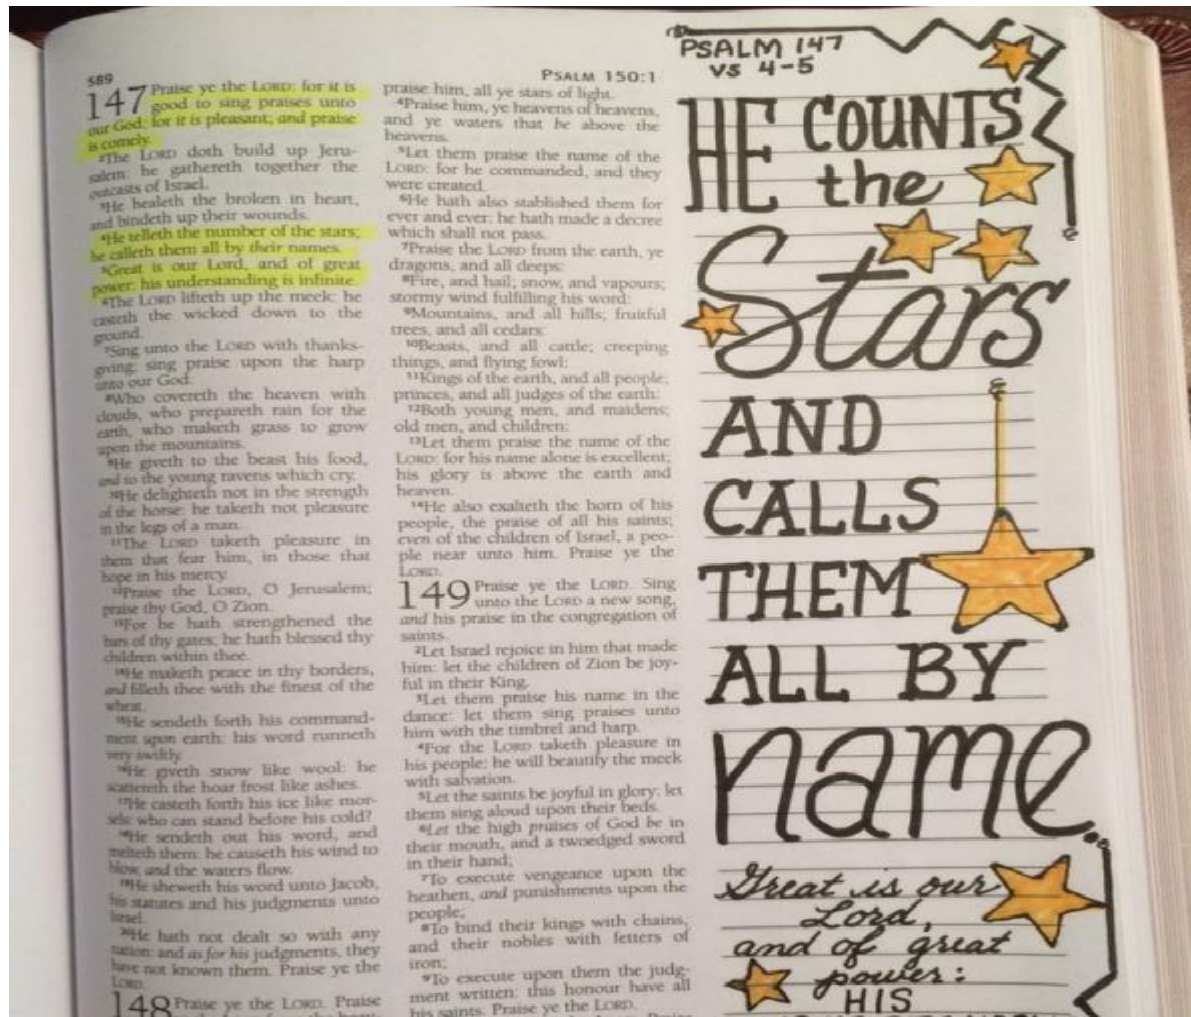 589
PSALM 150:1
147 Praise ye the LORD: for it is
good to sing praises unto
our God; for it is pleasant; and praise
is comely.
2The LORD doth build up Jeru-
salem: he gathereth together the
outcasts of Israel.
3He healeth the broken in heart,
and bindeth up their wounds.
4He telleth the number of the stars;
he calleth them all by their names.
5Great is our Lord, and of great
power: his understanding is infinite.
6The LORD lifteth up the meek: he
casteth the wicked down to the
ground.
7Sing unto the LORD with thanks-
giving; sing praise upon the harp
unto our God:
8Who covereth the heaven with
clouds, who prepareth rain for the
earth, who maketh grass to grow
upon the mountains.
9He giveth to the beast his food,
and to the young ravens which cry.
10He delighteth not in the strength
of the horse: he taketh not pleasure
in the legs of a man.
11The LORD taketh pleasure in
them that fear him, in those that
hope in his mercy.
12Praise the LORD, O Jerusalem;
praise thy God, O Zion.
13For he hath strengthened the
bars of thy gates; he hath blessed thy
children within thee.
14He maketh peace in thy borders,
and filleth thee with the finest of the
wheat.
15He sendeth forth his command-
ment upon earth: his word runneth
very swiftly.
16He giveth snow like wool: he
scattereth the hoar frost like ashes.
17He casteth forth his ice like mor-
sels: who can stand before his cold?
18He sendeth out his word, and
melteth them: he causeth his wind to
blow, and the waters flow.
19He sheweth his word unto Jacob,
his statutes and his judgments unto
Israel.
20He hath not dealt so with any
nation: and as for his judgments, they
have not known them. Praise ye the
LORD.
148 Praise ye the LORD. Praise
praise him, all ye stars of light.
4Praise him, ye heavens of heavens,
and ye waters that be above the
heavens.
5Let them praise the name of the
LORD: for he commanded, and they
were created.
6He hath also stablished them for
ever and ever: he hath made a decree
which shall not pass.
7Praise the LORD from the earth, ye
dragons, and all deeps:
8Fire, and hail; snow, and vapours;
stormy wind fulfilling his word:
9Mountains, and all hills; fruitful
trees, and all cedars:
10Beasts, and all cattle; creeping
things, and flying fowl:
11Kings of the earth, and all people;
princes, and all judges of the earth:
12Both young men, and maidens;
old men, and children:
13Let them praise the name of the
LORD: for his name alone is excellent;
his glory is above the earth and
heaven.
14He also exalteth the horn of his
people, the praise of all his saints;
even of the children of Israel, a peo-
ple near unto him. Praise ye the
LORD.
149 Praise ye the LORD. Sing
unto the LORD a new song,
and his praise in the congregation of
saints.
2Let Israel rejoice in him that made
him: let the children of Zion be joy-
ful in their King.
3Let them praise his name in the
dance: let them sing praises unto
him with the timbrel and harp.
4For the LORD taketh pleasure in
his people: he will beautify the meek
with salvation.
5Let the saints be joyful in glory: let
them sing aloud upon their beds.
6Let the high praises of God be in
their mouth, and a twoedged sword
in their hand;
7To execute vengeance upon the
heathen, and punishments upon the
people;
8To bind their kings with chains,
and their nobles with fetters of
iron;
9To execute upon them the judg-
ment written: this honour have all
his saints. Praise ye the LORD.
PSALM 147
VS 4-5
HE COUNTS
the
Stars
AND
CALLS
THEM
ALL BY
name.
Great is our
Lord,
and of great
power:
HIS